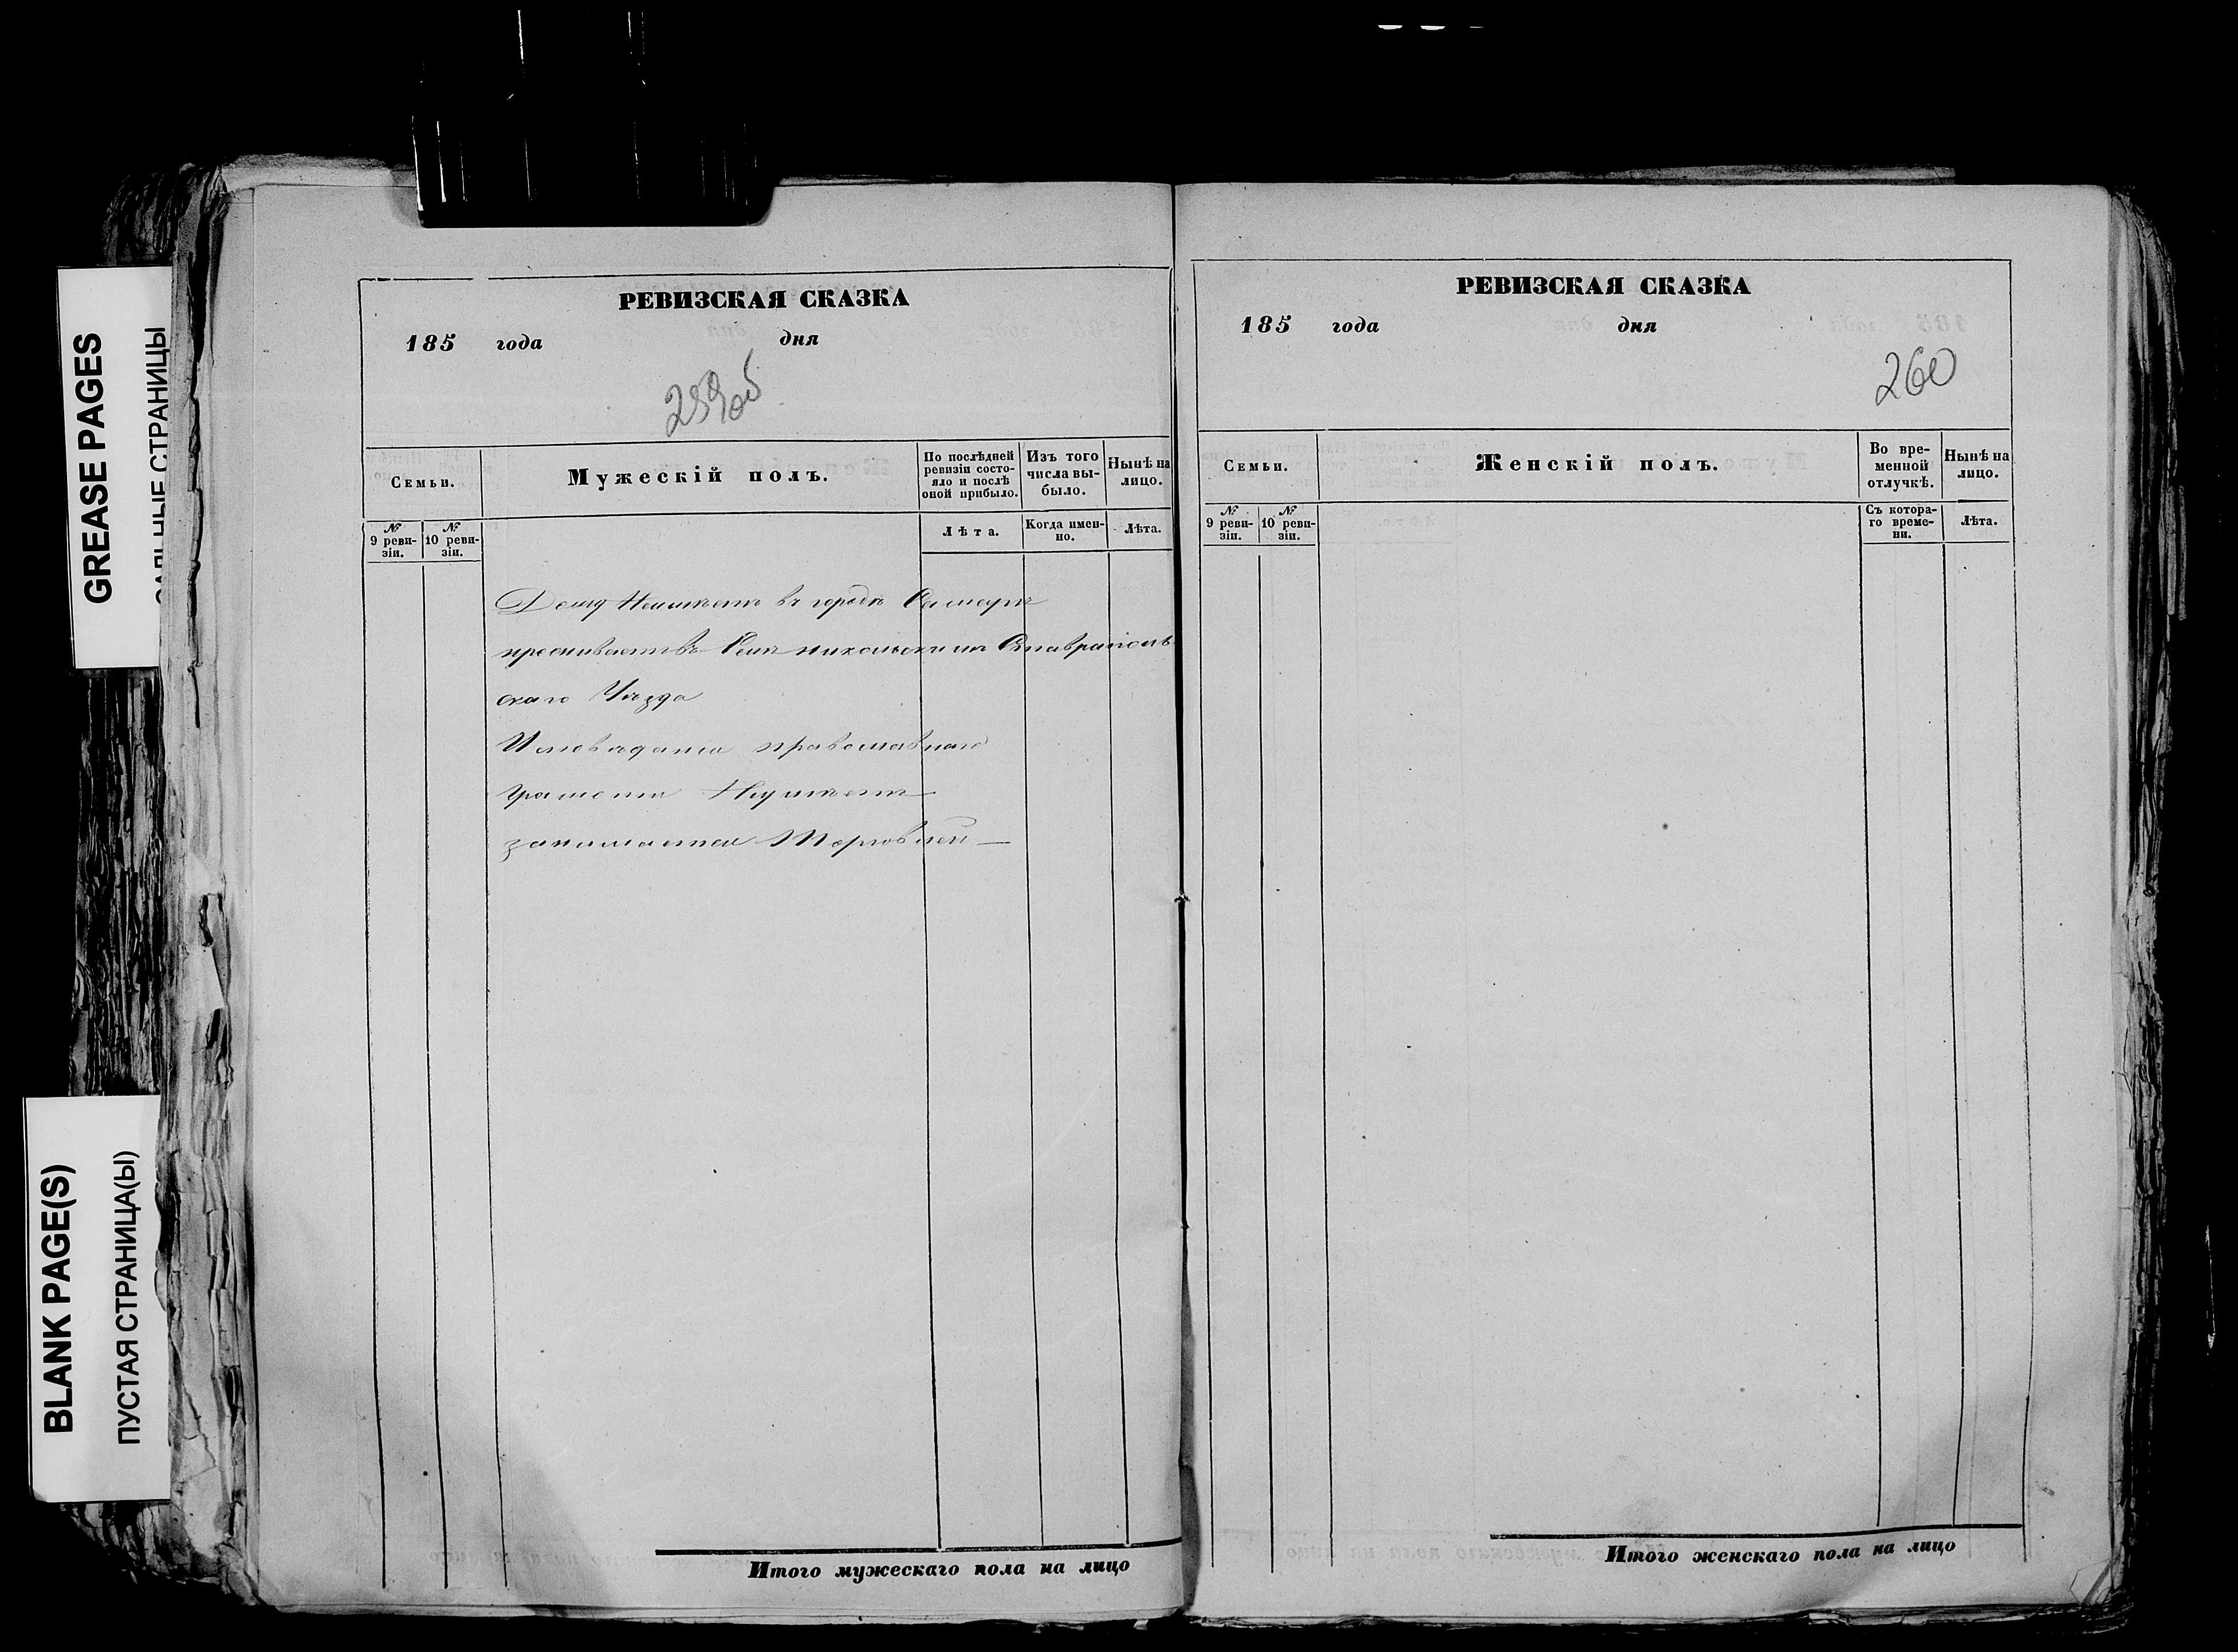 GREASE PAGES
САЛЬНЫЕ СТРАНИЦЫ
BLANK PAGE(S)
ПУСТАЯ СТРАНИЦА(Ы)
РЕВИЗСКАЯ СКАЗКА
185 года дня
259об
Семьи.
Мужескій полъ.
По послѣдней ревизіи состо-
яло и послѣ
оной прибыло.
Изъ того
числа вы-
было.
Нынѣ на
лицо.
№
9 реви-
зіи.
№
10 реви-
зіи.
Лѣта.
Когда имен-
но.
Лѣта.
Дому Неимѣетъ въ городѣ Самарѣ
проживаетъ въ Селѣ никольскимъ Ставраполь
скаго Уѣзда
Исповеданія православнаго
Грамоти Неумѣетъ
занимается Торговлей —
Итого мужескаго пола на лицо
РЕВИЗСКАЯ СКАЗКА
185 года дня
260
Семьи.
Женскій полъ.
Во вре-
менной
отлучкѣ.
Нынѣ на
лицо.
№
9 реви-
зіи.
№
10 реви-
зіи.
Съ котора-
го време-
ни.
Лѣта.
Итого женскаго пола на лицо